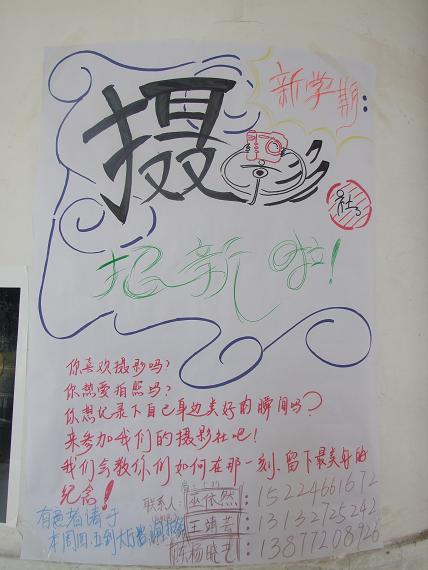 新学期:
摄影
社
招新啦!
你喜欢摄影吗?
你热爱拍照吗?
你想记录下自己身边美好的瞬间吗?
来参加我们的摄影社吧!
我们会教你们如何在那一刻,留下最美好的
纪念!
联系人: 巫依然:15224661672
王靖芸:13132725242
陈杨晓艺:13877208928
有意者请于
本周四.五到